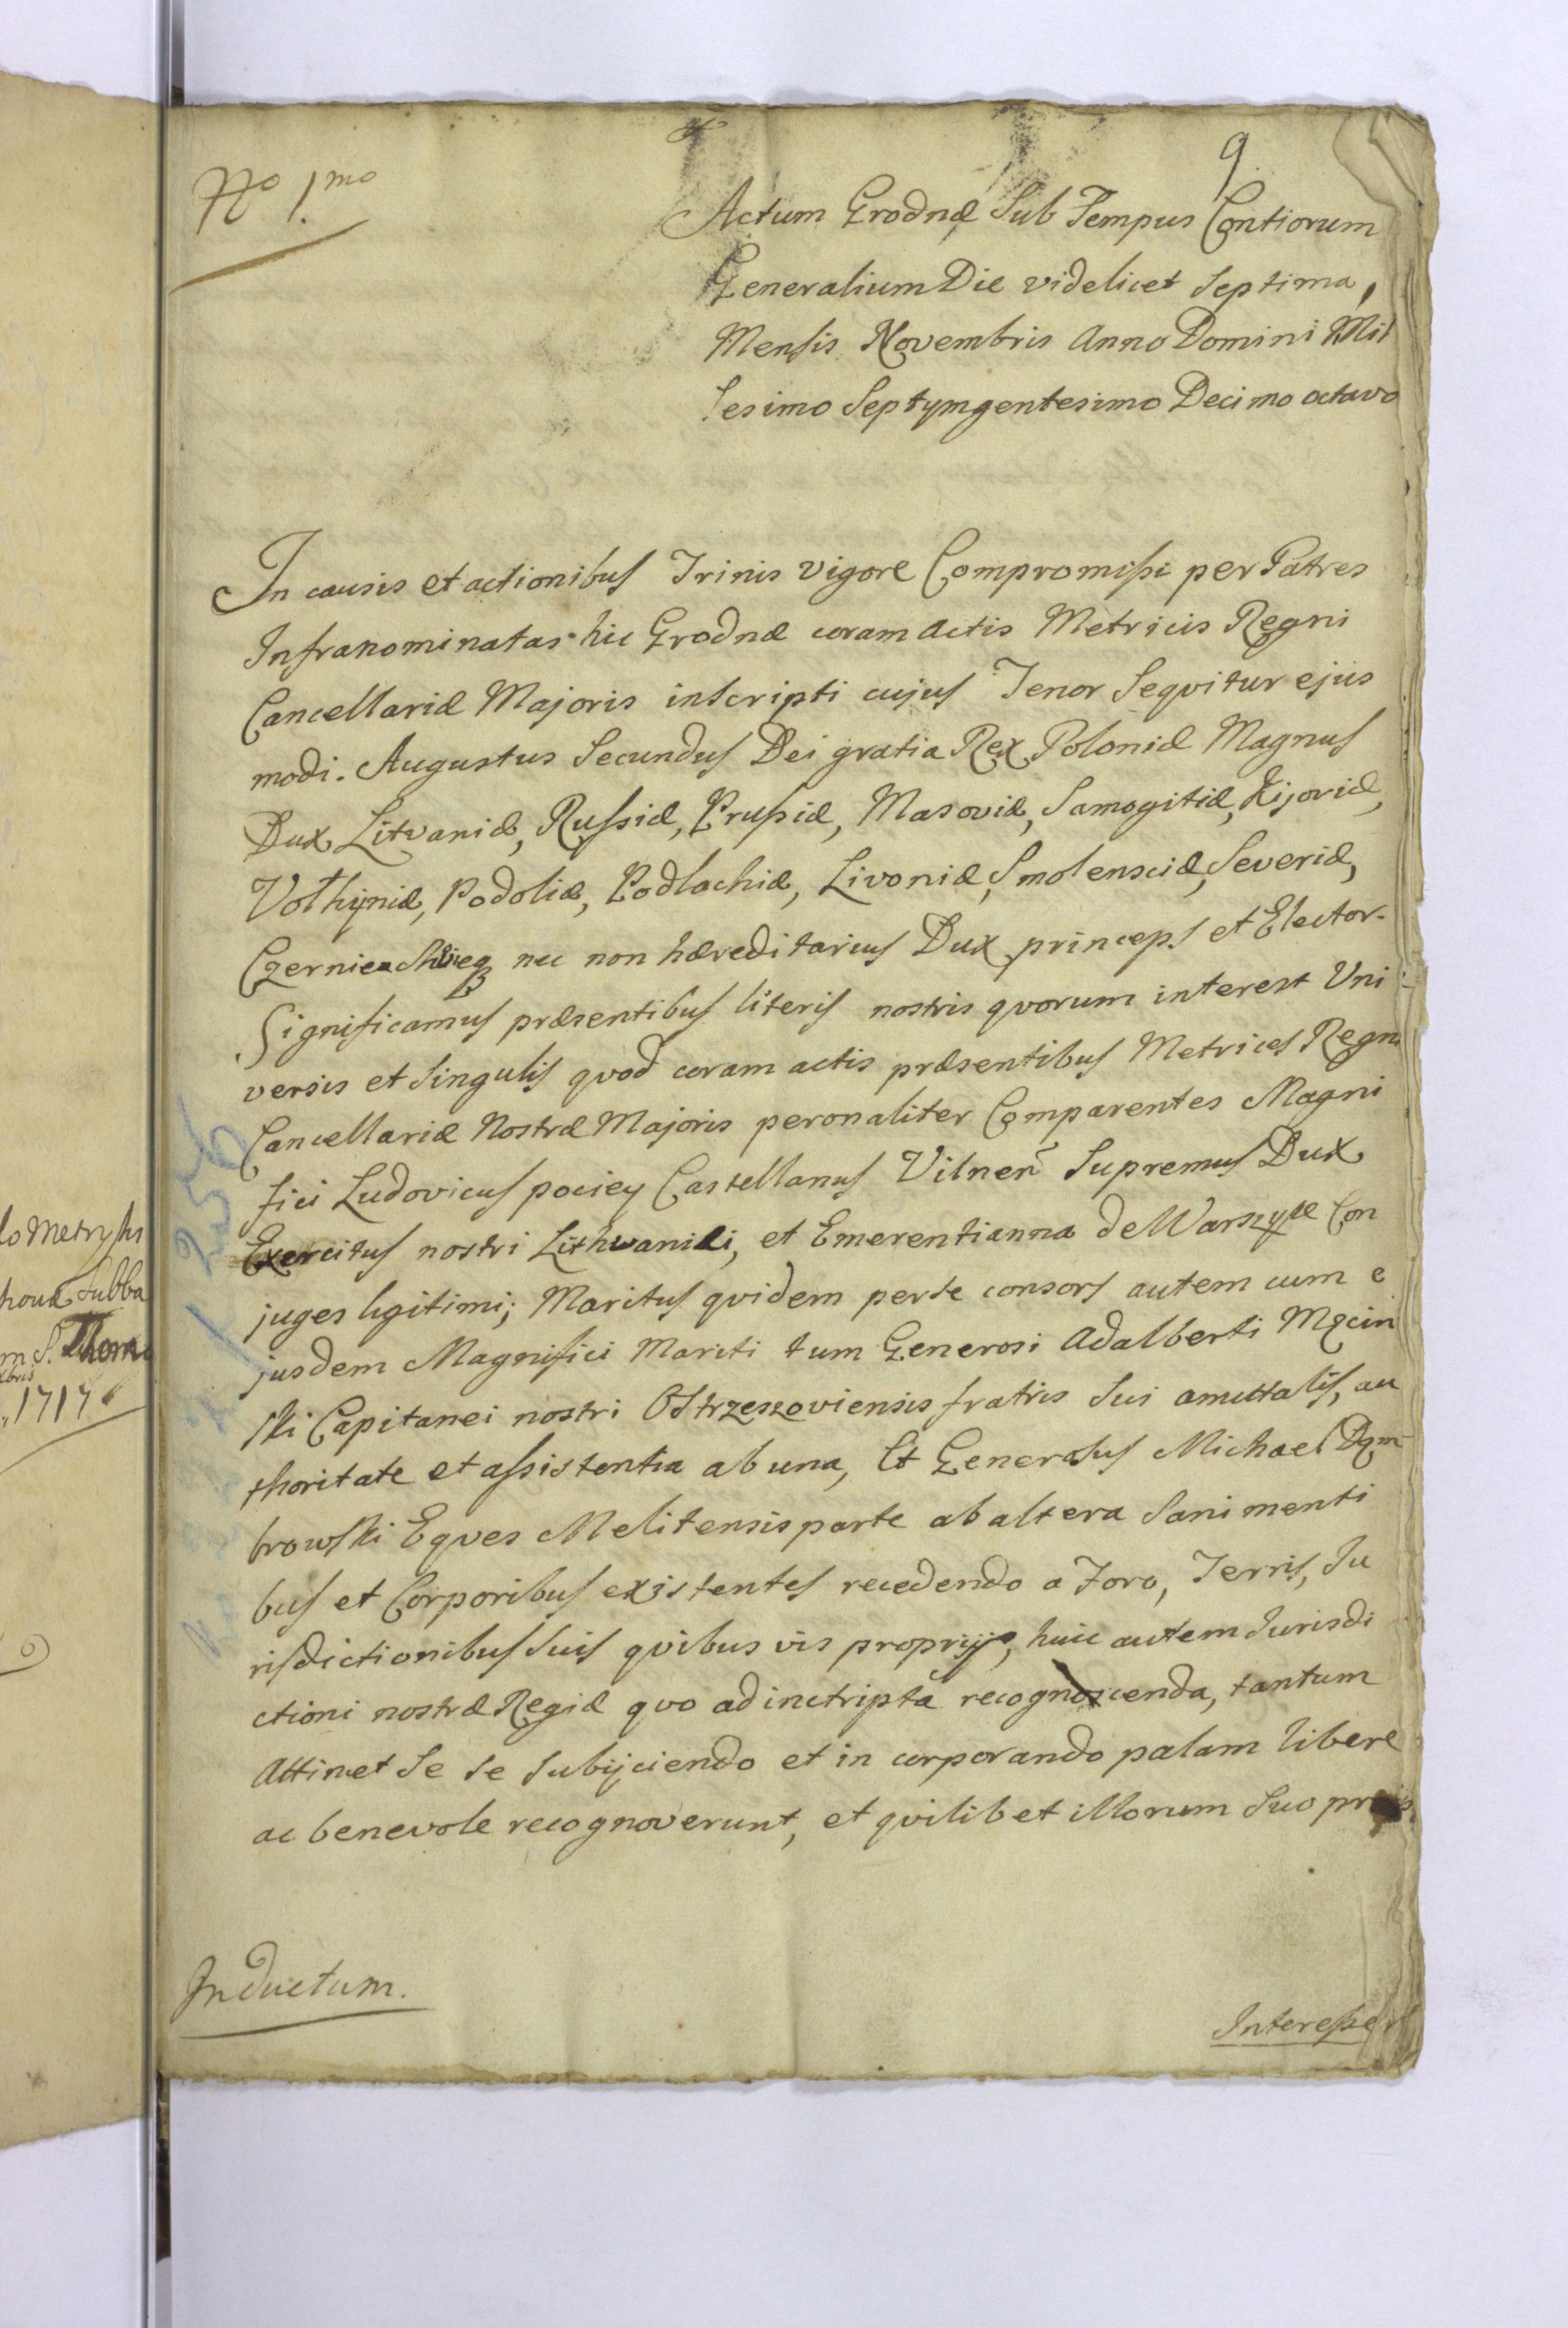 No 1.mo
9
Actum Grodnæ Sub Tempus Contiorum
Generalium Die videlicet Septima,
Mensis Novembris Anno Domini Mil
lesimo Septymgentesimo Decimo octavo
In causis et actionibus Trinis vigore Compromissi per Patres
Infranominatas hic Grodnæ coram actis Metricis Regni
Cancellariæ Majoris inscripti cujus Tenor Seqvitur ejus
modi. Augustus Secundus Dei gratia Rex Poloniæ Magnus
Dux Litvaniæ, Russiæ, Prussiæ, Masoviæ, Samogitiæ, Kijoviæ,
Volhyniæ, Podoliæ, Podlachiæ, Livoniæ, Smolensciæ, Severiæ,
nec non hæreditarius Dux princeps et Elector.
Significamus præsentibus literis nostris qvorum interest Uni
versis et Singulis qvod coram actis præsentibus Metrices Regni
Cancellariæ Nostræ Majoris peronaliter Comparentes Magni
fici Ludovicus pociey Castellanus Vilnen Supremus Dux
Exercitus nostri Lithvanici, et Emerentianna de Warszyce Con
juges legitimi; Maritus qvidem per se consors autem cum e
jusdem Magnifici Mariti tum Generosi Adalberti Męcin
ski Capitanei nostri Ostrzeszoviensis fratris Sui amittalis, au
thoritate et assistentia ab una, Et Generosus Michael Dąm
browski Eqves Melitensis parte ab altera Sani menti
bus et Corporibus existentes recedendo a Foro, Terris, Ju
risdictionibus Suis qvibus vis proprijs, huic autem Jurisdi
ctioni nostræ Regiæ qvo ad inctripta recognoscenda, tantum
Attinet Se se Subijciendo et in corporando palam libere
ac benevole recognoverunt, et qvilibet illorum Suo
Inductum.
Interesse
lo Metryki
1717